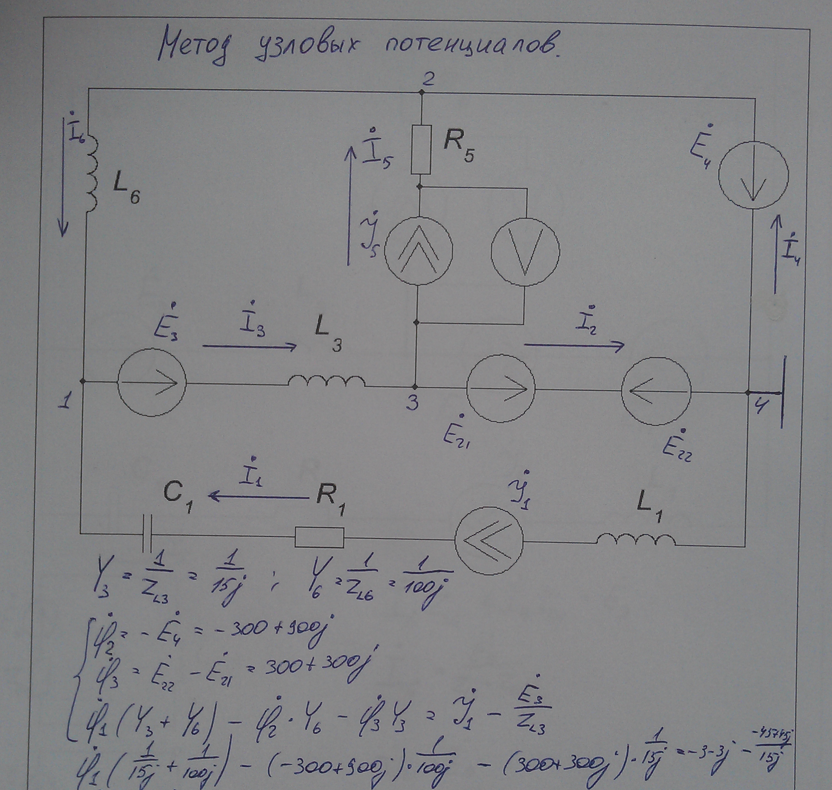 Метод узловых потенциалов.
2
İ₆
L₆
R₅
İ₅
J̇₅
V
Ė₄
İ₄
Ė₃
İ₃
L₃
İ₂
1
3
4
Ė₂₁
Ė₂₂
C₁
İ₁
R₁
J̇₁
L₁
Y₃ = 1/Z_L3 = 1/15j ; Y₆ = 1/Z_L6 = 1/100j
φ̇₂ = -Ė₄ = -300+900j
φ̇₃ = Ė₂₂ - Ė₂₁ = 300+300j
φ̇₁(Y₃ + Y₆) - φ̇₂·Y₆ - φ̇₃Y₃ = J̇₁ - Ė₃/Z_L3
φ̇₁(1/15j + 1/100j) - (-300+900j)·1/100j - (300+300j)·1/15j = -3-3j -